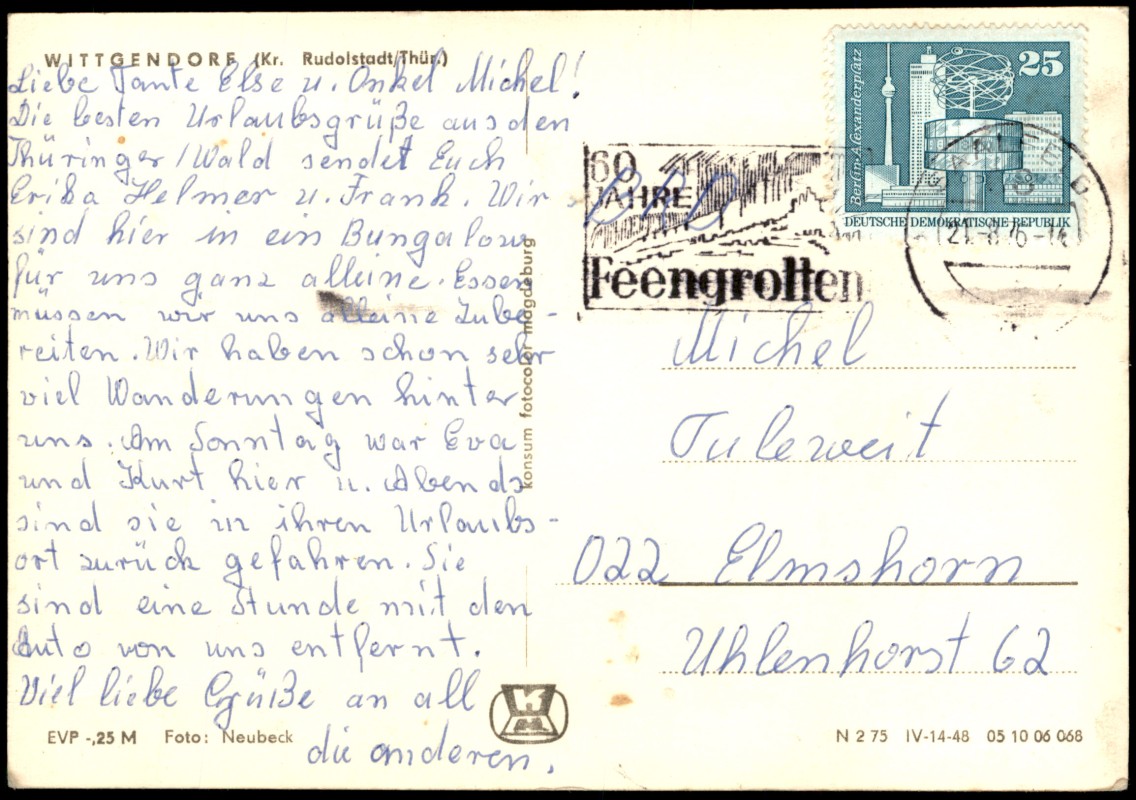 WITTGENDORF (Kr. Rudolstadt/Thür.)
Liebe Tante Else u. Onkel Michel!
Die besten Urlaubsgrüße aus den
Thüringer Wald sendet Euch
Erika Helmer u. Frank. Wir
sind hier in ein Bungalow
für uns ganz alleine. Essen
müssen wir uns alleine Zube-
reiten. Wir haben schon sehr
viel Wanderungen hinter
uns. Am Sonntag war Eva
und Kurt hier u. Abends
sind sie in ihren Urlaubs-
ort zurück gefahren. Sie
sind eine Stunde mit den
Auto von uns entfernt.
Viel liebe Grüße an all
die anderen.
EVP -,25 M Foto: Neubeck
konsum fotocolor magdeburg
KM
Berlin-Alexanderplatz
25
DEUTSCHE DEMOKRATISCHE REPUBLIK
60
JAHRE
Feengrotten
Michel
Tuleweit
022 Elmshorn
Uhlenhorst 62
N 2 75 IV-14-48 05 10 06 068